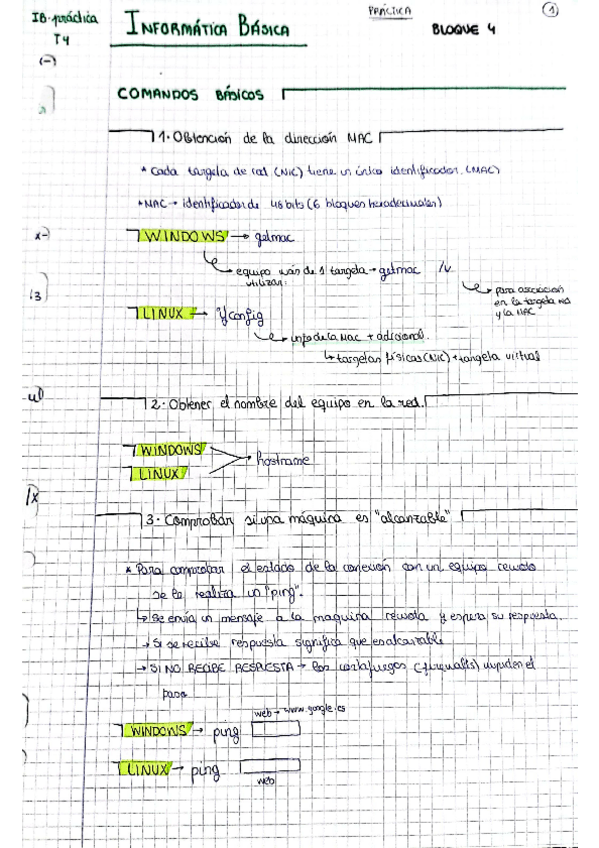 IB-práctica
T4
INFORMÁTICA BÁSICA
PRÁCTICA
BLOQUE 4
1
COMANDOS BÁSICOS
1. Obtención de la dirección MAC
* Cada targeta de red (NIC) tiene un único identificador. (MAC)
* MAC → identificador de 48 bits (6 bloques hexadecimales)
WINDOWS → getmac
equipo más de 1 targeta → getmac /v
utilizar:
para asociación
en la targeta red
y la MAC
LINUX → ifconfig
info de la Mac + adicional.
↳ targetas físicas (NIC) + targeta virtual
2. Obtener el nombre del equipo en la red.
WINDOWS
LINUX
→ hostname
3. Comprobar si una máquina es "alcanzable"
* Para comprobar el estado de la conexión con un equipo remoto
se le realiza un "ping".
↳ Se envía un mensaje a la maquina remota y espera su respuesta.
→ Si se recibe respuesta significa que es alcanzable
→ SI NO RECIBE RESPUESTA → los cortafuegos (firewalls) impiden el
paso
web → www.google.es
WINDOWS → ping
LINUX → ping
web